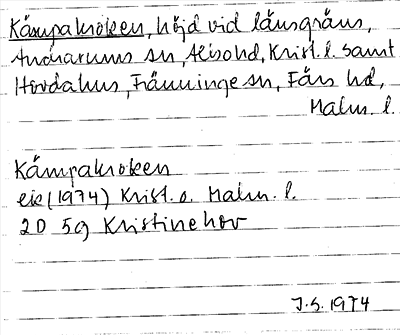 Kämpakroken, höjd vid länsgräns,
Andrarums sn, Albo hd, Krist. l. samt
Hordahus, Tränninge sn, Färs hd,
Malm. l.
Kämpakroken
ek (1974) Krist. o. Malm. l.
2D 5g Kristinehov
J.S. 1974